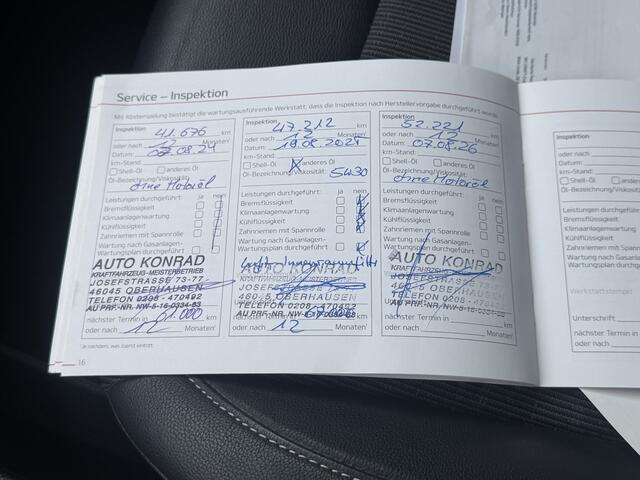 Service – Inspektion
Mit Abstempelung bestätigt die wartungsausführende Werkstatt, dass die Inspektion nach Herstellervorgabe durchgeführt wurde.
Inspektion
41.676 km
oder nach 12 Monaten¹
Datum: 07.08.24
km-Stand:
Shell-Öl anderes Öl
Öl-Bezeichnung/Viskosität:
ohne Motoröl
Leistungen durchgeführt: ja nein
Bremsflüssigkeit
Klimaanlagenwartung
Kühlflüssigkeit
Zahnriemen mit Spannrolle
Wartung nach Gasanlagen-
Wartungsplan durchgeführt:
AUTO KONRAD
KRAFTFAHRZEUG-MEISTERBETRIEB
JOSEFSTRASSE 73-77
46045 OBERHAUSEN
TELEFON 0208-470492
AU PRF.-NR. NW-5-16-0334-83
nächster Termin in 61.000
oder nach 12 Monaten¹
Inspektion
47.212 km
oder nach 12 Monaten¹
Datum:
km-Stand:
Shell-Öl X anderes Öl
Öl-Bezeichnung/Viskosität: 5W30
Leistungen durchgeführt: ja nein
Bremsflüssigkeit
Klimaanlagenwartung
Kühlflüssigkeit
Zahnriemen mit Spannrolle
Wartung nach Gasanlagen-
Wartungsplan durchgeführt:
AUTO KONRAD
46045 OBERHAUSEN
TELEFON 0208-470492
nächster Termin in
oder nach 12 Monaten¹
Inspektion
52.221 km
oder nach 12 Monaten¹
Datum: 07.08.26
km-Stand:
Shell-Öl anderes Öl
Öl-Bezeichnung/Viskosität:
ohne Motoröl
Leistungen durchgeführt: ja nein
Bremsflüssigkeit
Klimaanlagenwartung
Kühlflüssigkeit
Zahnriemen mit Spannrolle
Wartung nach Gasanlagen-
Wartungsplan durchgeführt:
AUTO KONRAD
46045 OBERHAUSEN
TELEFON 0208-470492
nächster Termin in km
oder nach Monaten¹
¹ Je nachdem, was zuerst eintritt.
16
Inspektion
oder nach
Datum:
km-Stand:
Shell-Öl
Öl-Bezeichnung
Leistungen durch
Bremsflüssigkeit
Klimaanlagenwart
Kühlflüssigkeit
Zahnriemen mit Sp
Wartung nach Gas
Wartungsplan durch
Werkstattstempel
Unterschrift
nächster Termin in
oder nach